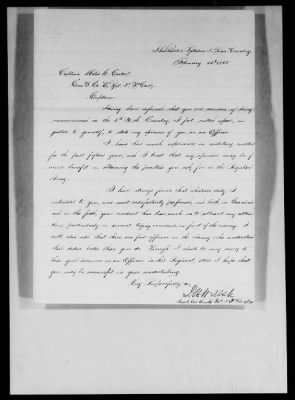 February
Captain
Captain
Having been informed that you are desirous of being
commissioned in the 5th U.S. Cavalry, I feel called upon, in
justice to yourself, to state my opinion of you as an Officer.
I have had much experience in military matters
for the past fifteen years, and I trust that my opinion may be of
some benefit in obtaining the position you ask for in the Regular
Army.
I have always found that whatever duty
intrusted to you, was most satisfactorily performed, and both in Garrison
and in the field, your conduct has been such as to attract my atten-
tion, particularly, in several trying occasions, in front of the enemy. I
will also add that there are few officers in the army who understand
their duties better than you do. Though I shall be very sorry to
lose your services as an Officer in this Regiment still I hope that
you may be successful in your undertaking.
Very Respectfully,